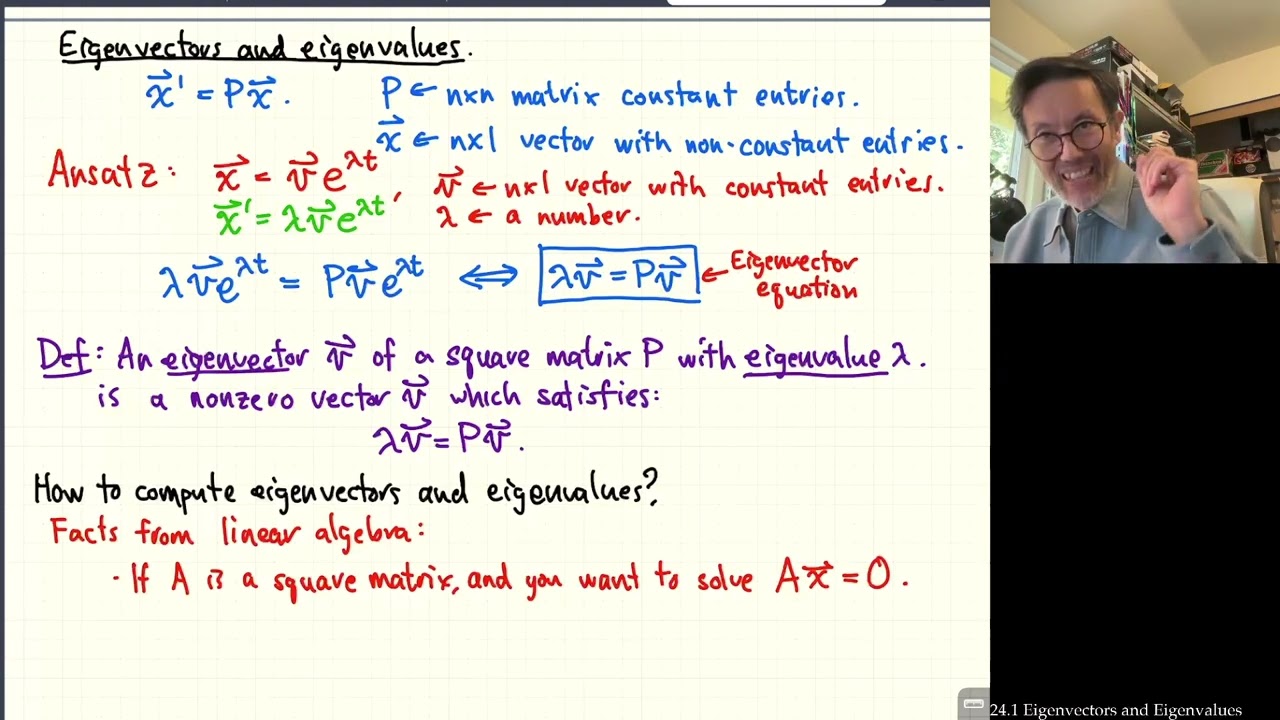 Eigenvectors and eigenvalues.
x⃗' = Px⃗. P ← n×n matrix constant entries.
x⃗ ← n×1 vector with non-constant entries.
Ansatz: x⃗ = v⃗e^{λt}, v⃗ ← n×1 vector with constant entries.
x⃗' = λv⃗e^{λt} λ ← a number.
λv⃗e^{λt} = Pv⃗e^{λt} ⟺ λv⃗ = Pv⃗ ← Eigenvector
equation
Def: An eigenvector v⃗ of a square matrix P with eigenvalue λ.
is a nonzero vector v⃗ which satisfies:
λv⃗ = Pv⃗.
How to compute eigenvectors and eigenvalues?
Facts from linear algebra:
· If A is a square matrix, and you want to solve Ax⃗ = 0.
24.1 Eigenvectors and Eigenvalues